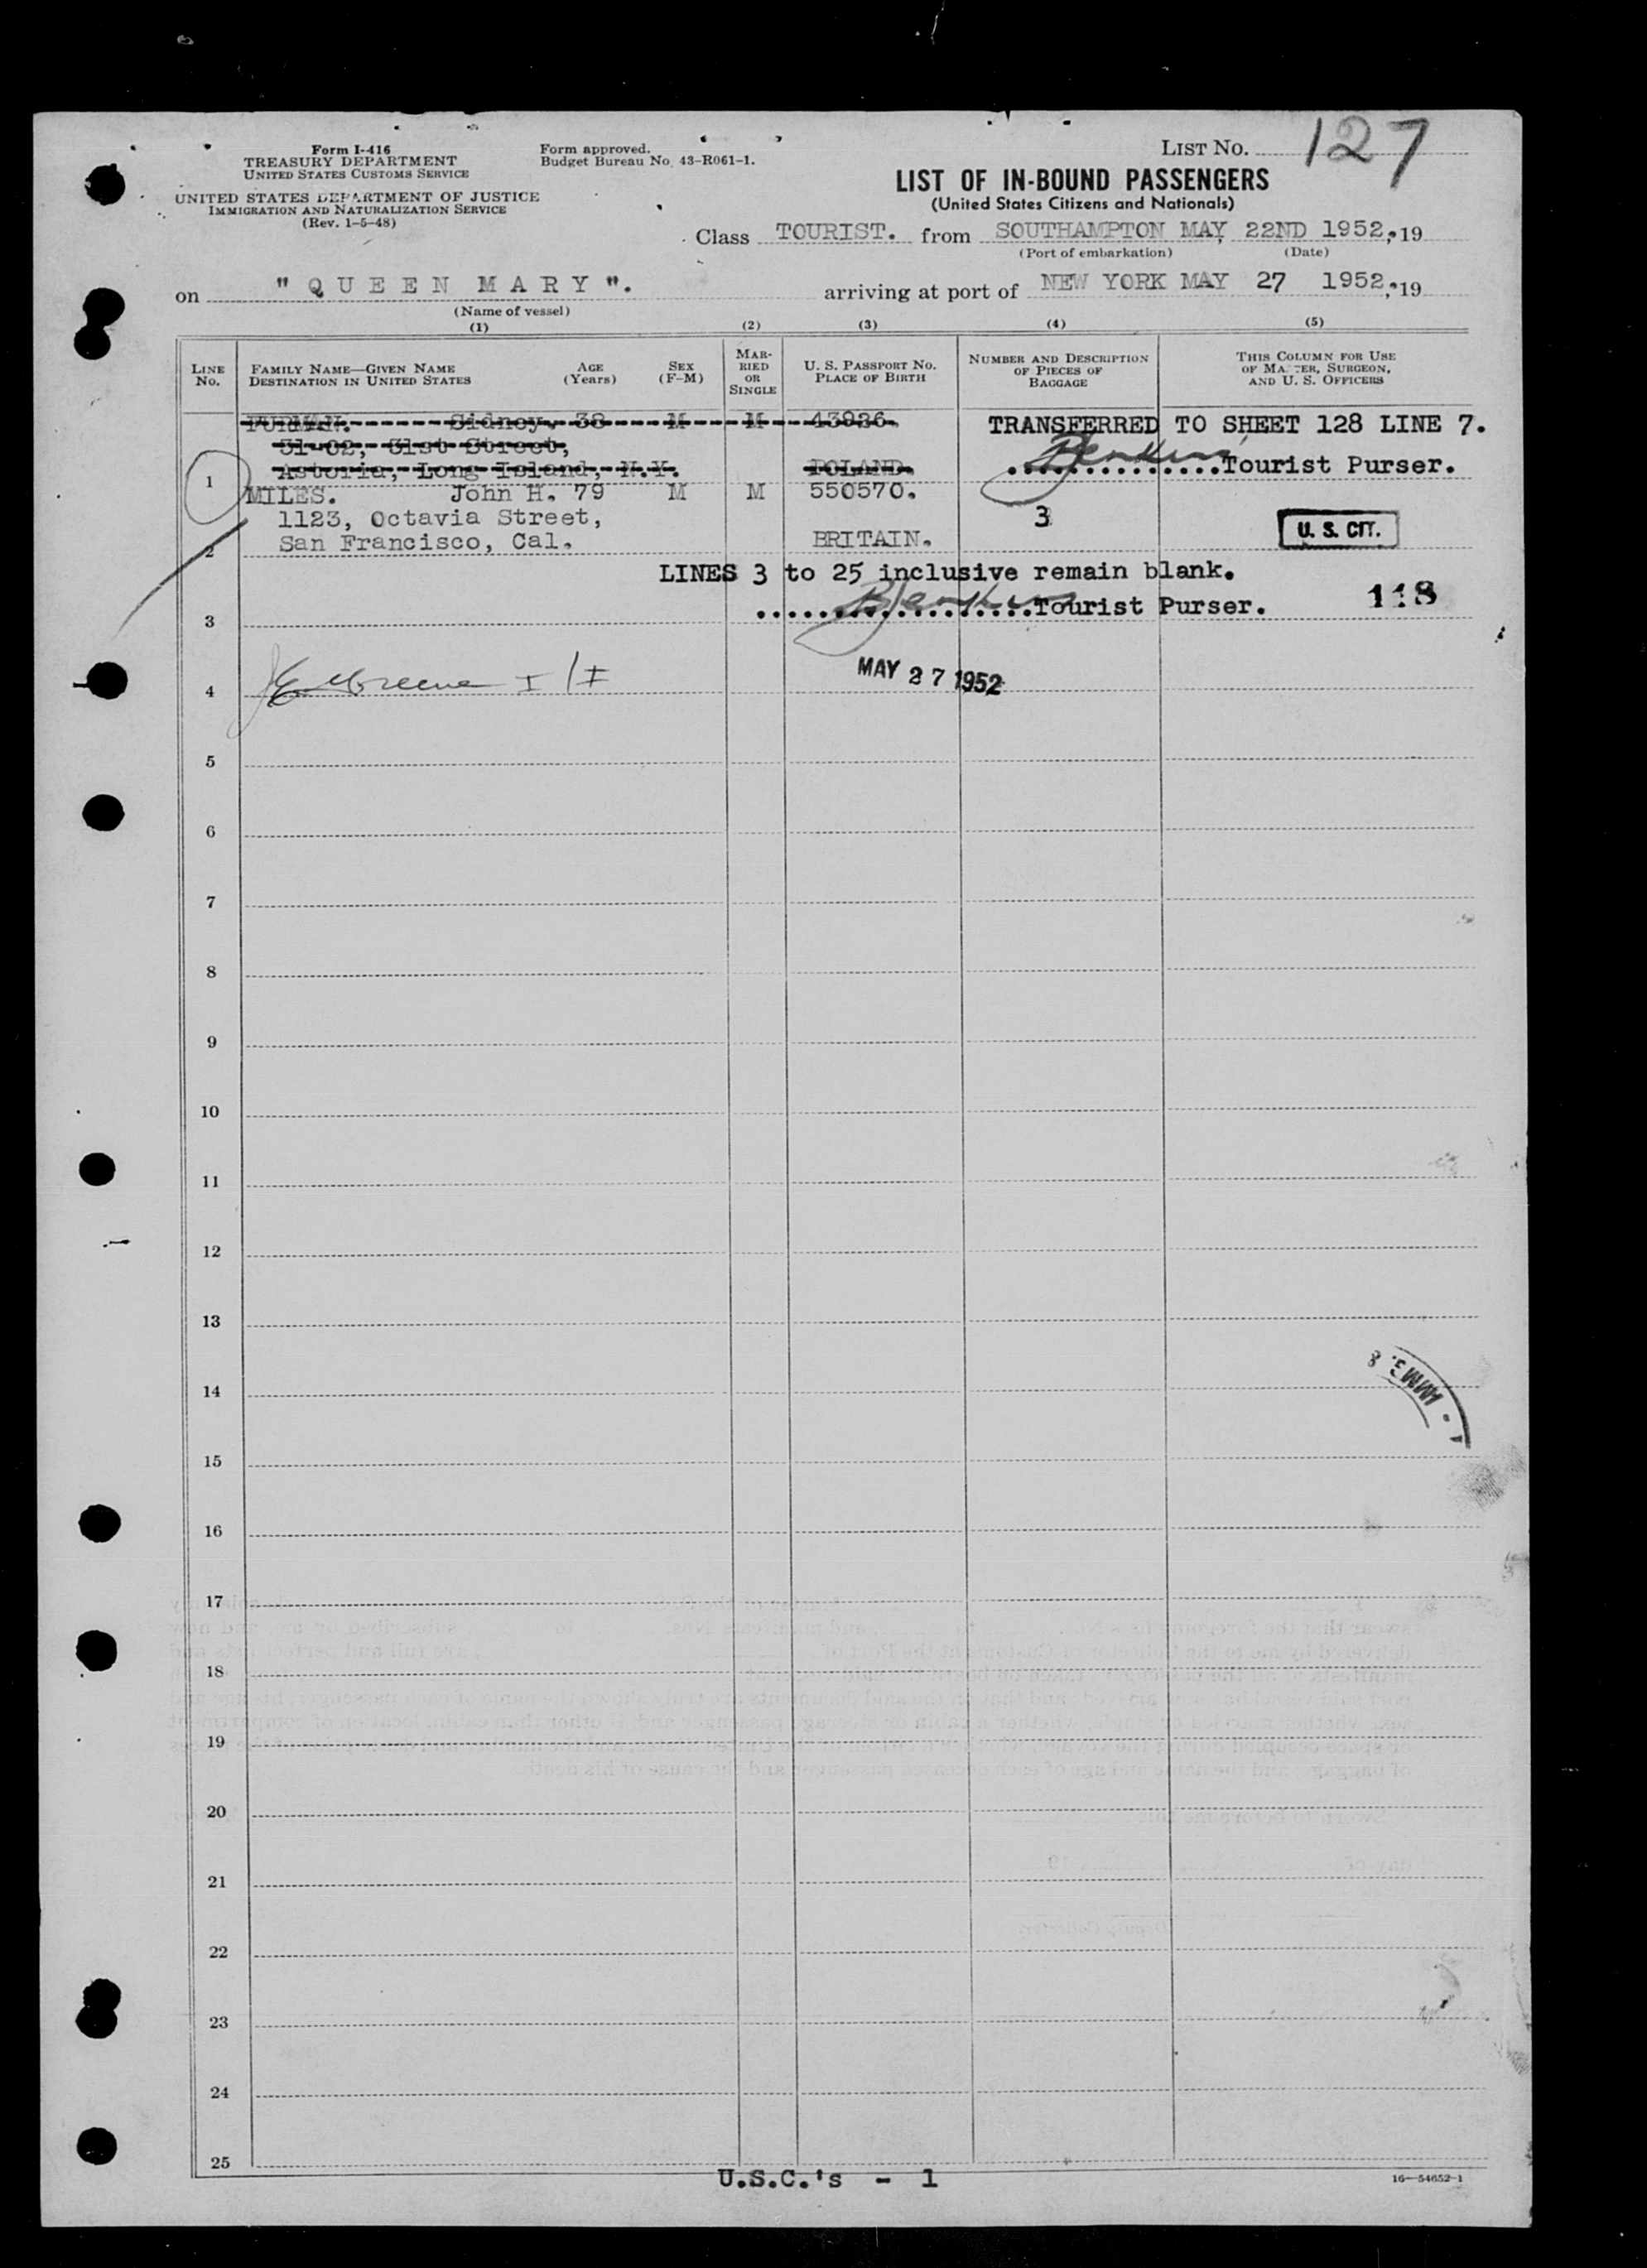 127
Form I-416
TREASURY DEPARTMENT
UNITED STATES CUSTOMS SERVICE
Form approved.
Budget Bureau No. 43-R061-1.
LIST No.
UNITED STATES DEPARTMENT OF JUSTICE
IMMIGRATION AND NATURALIZATION SERVICE
(Rev. 1-5-48)
LIST OF IN-BOUND PASSENGERS
(United States Citizens and Nationals)
Class TOURIST. from SOUTHAMPTON MAY 22ND 1952, 19
(Port of embarkation) (Date)
on " QUEEN MARY ". arriving at port of NEW YORK MAY 27 1952, 19
(Name of vessel)
(1) (2) (3) (4) (5)
LINE No. FAMILY NAME—GIVEN NAME DESTINATION IN UNITED STATES AGE (Years) SEX (F-M) MARRIED OR SINGLE U. S. PASSPORT No. PLACE OF BIRTH NUMBER AND DESCRIPTION OF PIECES OF BAGGAGE THIS COLUMN FOR USE OF MASTER, SURGEON, AND U. S. OFFICERS
FURMAN. Sidney. 38 M M 43926. TRANSFERRED TO SHEET 128 LINE 7.
31-02, 31st Street,
Astoria, Long Island, N.Y. POLAND. Tourist Purser.
1
MILES. John H. 79 M M 550570.
1123, Octavia Street, 3 U. S. CIT.
San Francisco, Cal. BRITAIN.
2
LINES 3 to 25 inclusive remain blank.
Tourist Purser. 118
3
MAY 27 1952
4
5
6
7
8
9
10
11
12
13
14
15
16
17
18
19
20
21
22
23
24
25
U.S.C.'s - 1
16—54652-1